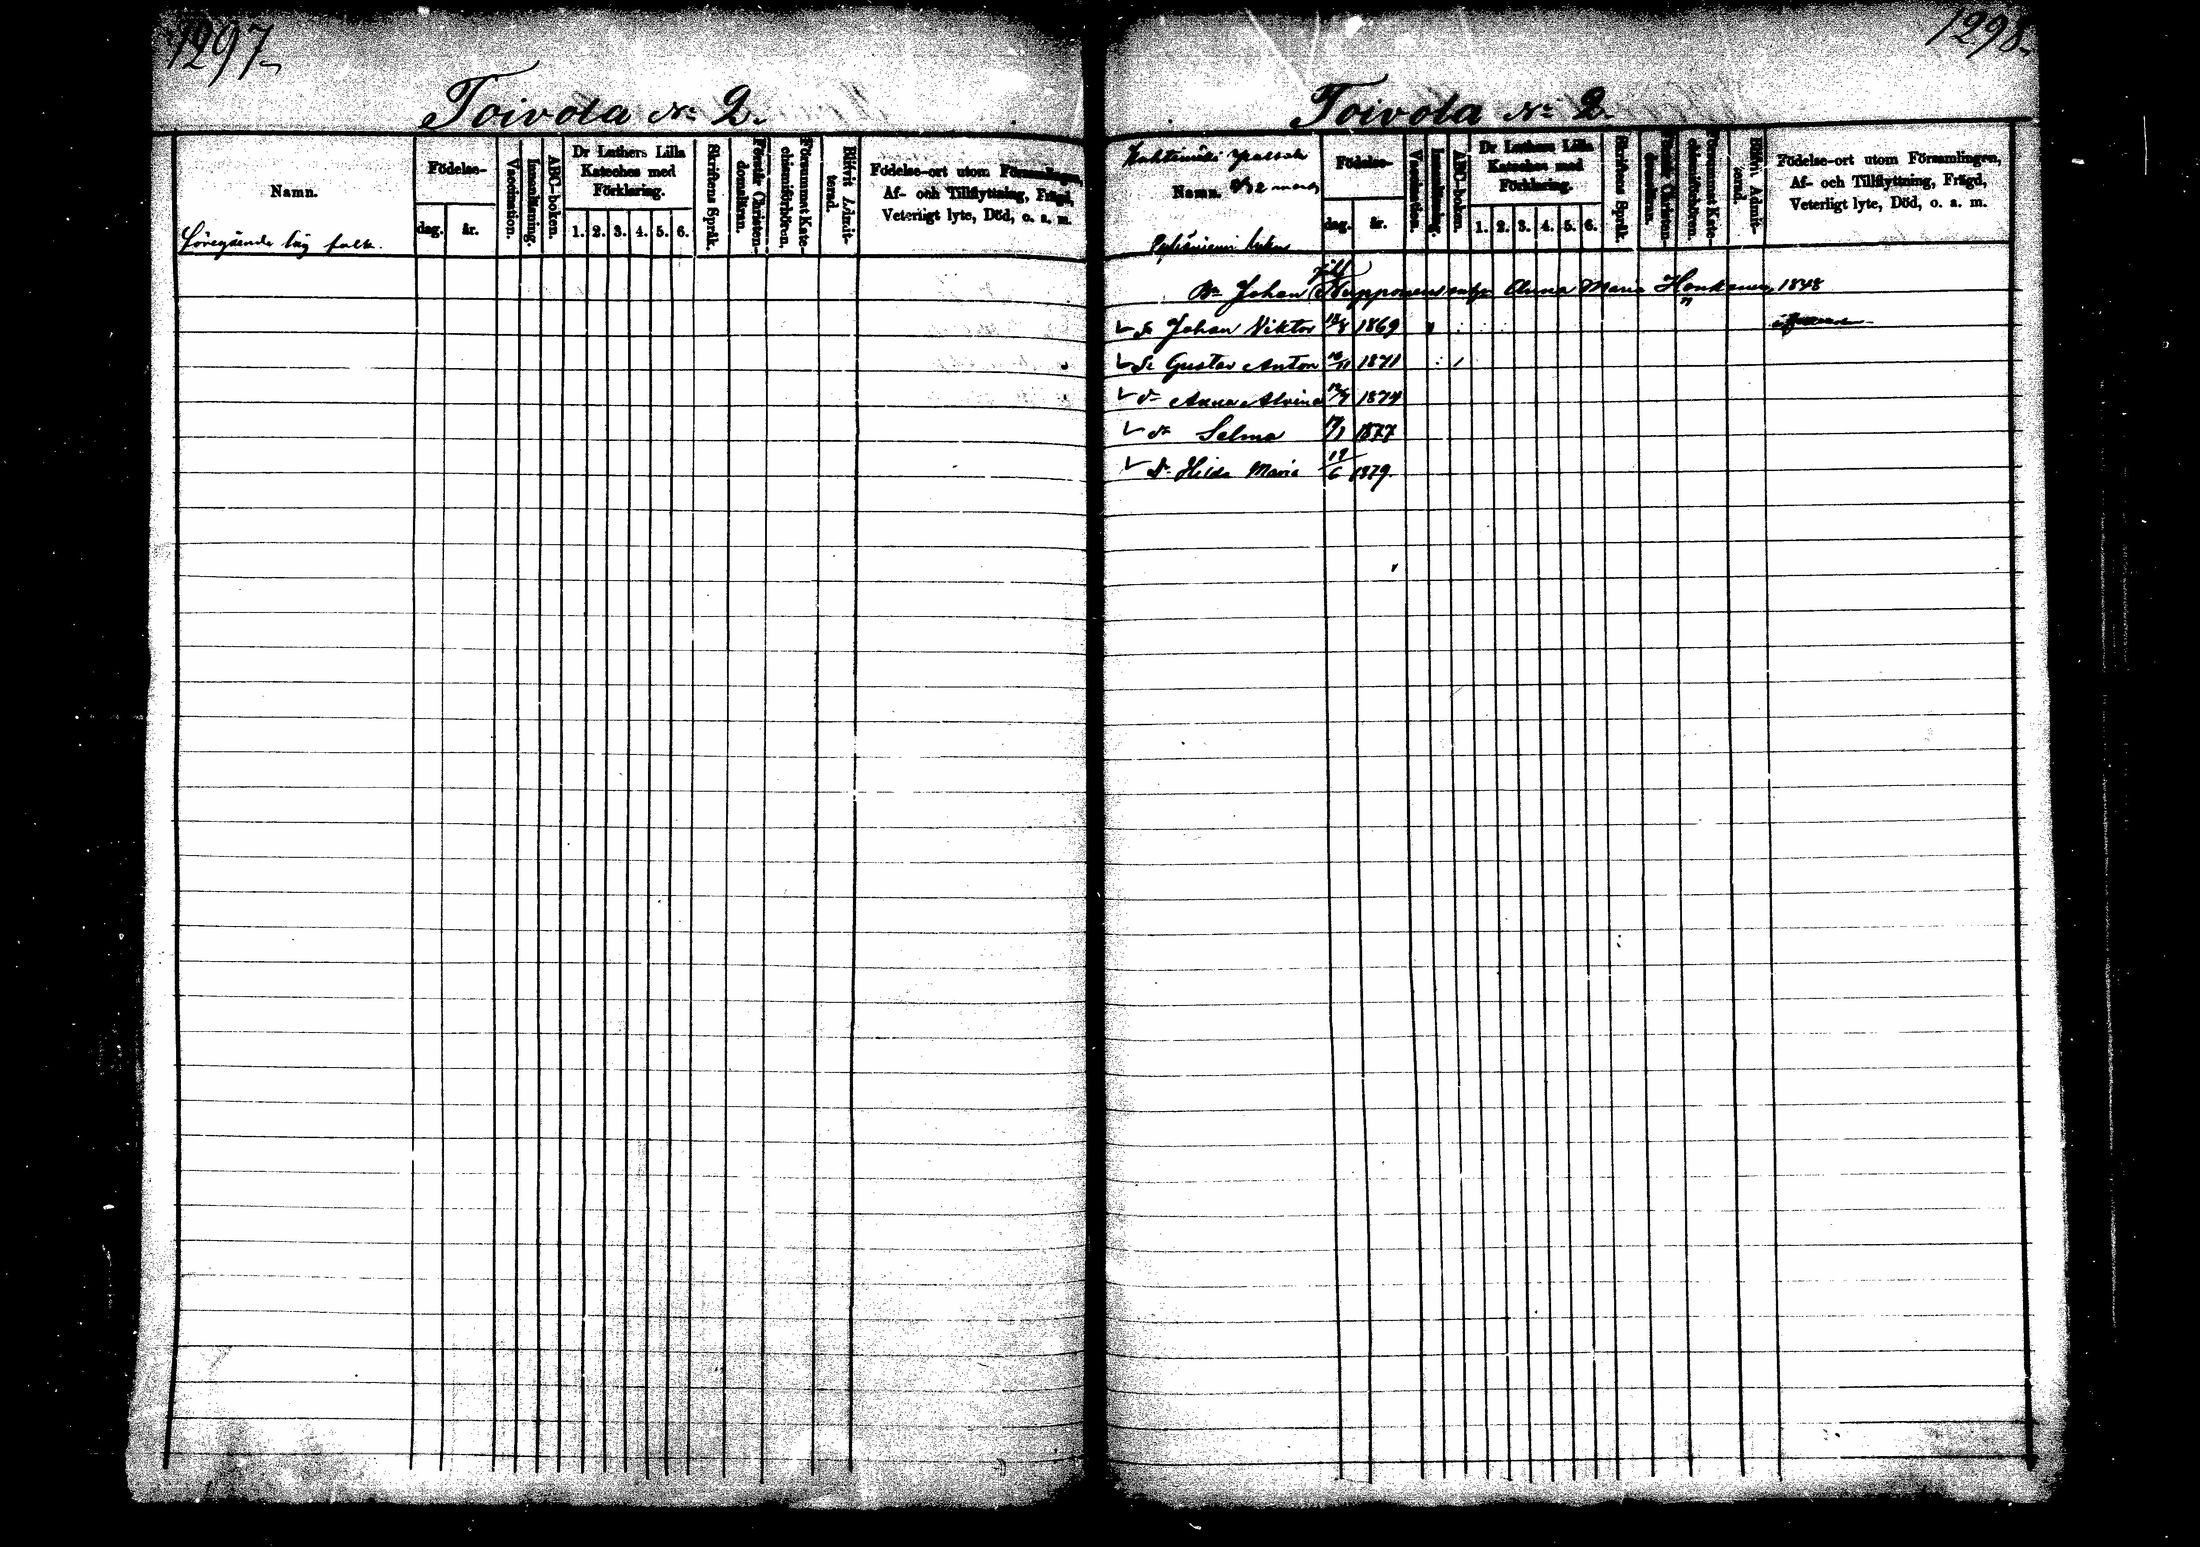 1297
Toivola No 2.
Namn.
Födelse-
dag.
år.
Vaccination.
Innanläsning.
ABC-boken.
Dr Luthers Lilla
Kateches med
Förklaring.
1. 2. 3. 4. 5. 6.
Skriftens Språk.
Förstår Christen-
domslären.
Försummat Kate-
chismiförhören.
Blifvit Admit-
terad.
Födelse-ort utom Församlingen,
Af- och Tillflyttning, Frägd,
Veterligt lyte, Död, o. a. m.
Föregående
1298
Toivola No 2.
Namn.
Födelse-
dag.
år.
Vaccination.
Innanläsning.
ABC-boken.
Dr Luthers Lilla
Kateches med
Förklaring.
1. 2. 3. 4. 5. 6.
Skriftens Språk.
Förstår Christen-
domslären.
Försummat Kate-
chismiförhören.
Blifvit Admit-
terad.
Födelse-ort utom Församlingen,
Af- och Tillflyttning, Frägd,
Veterligt lyte, Död, o. a. m.
Johan Anna Maria Honkanen 1848
Sn Johan Viktor 1869
Sn Gustav Anton 1871
dr Anna Alvina 1874
dr Selma 1877
Dr Hilda Maria 19/6 1879.